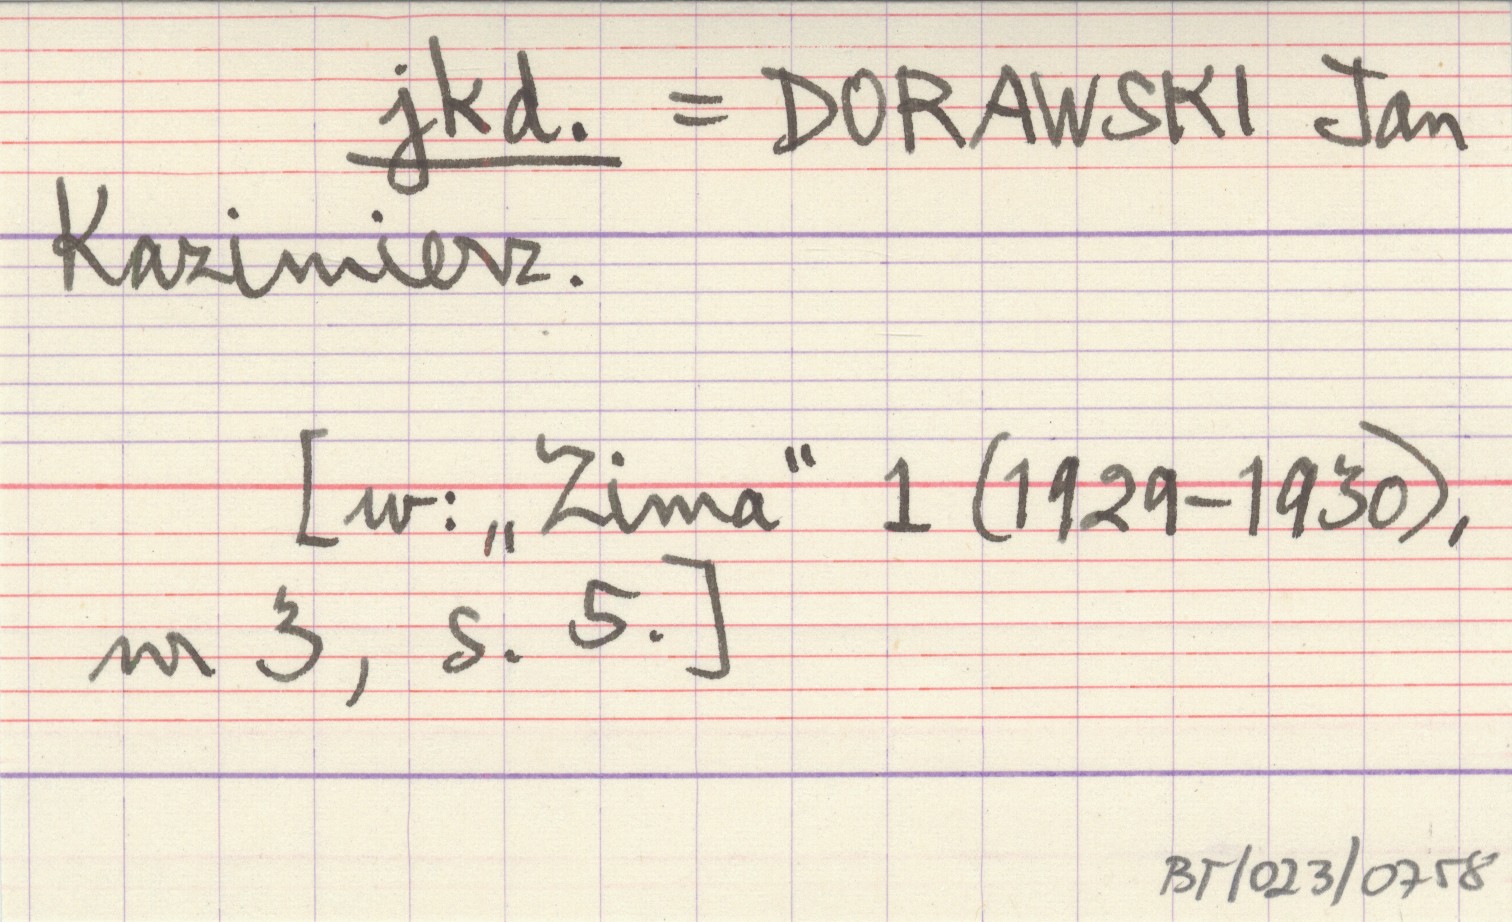 jkd. = DORAWSKI Jan
Kazimierz.
[w: „Zima" 1 (1929-1930),
nr 3, s. 5.]
BT/023/0758